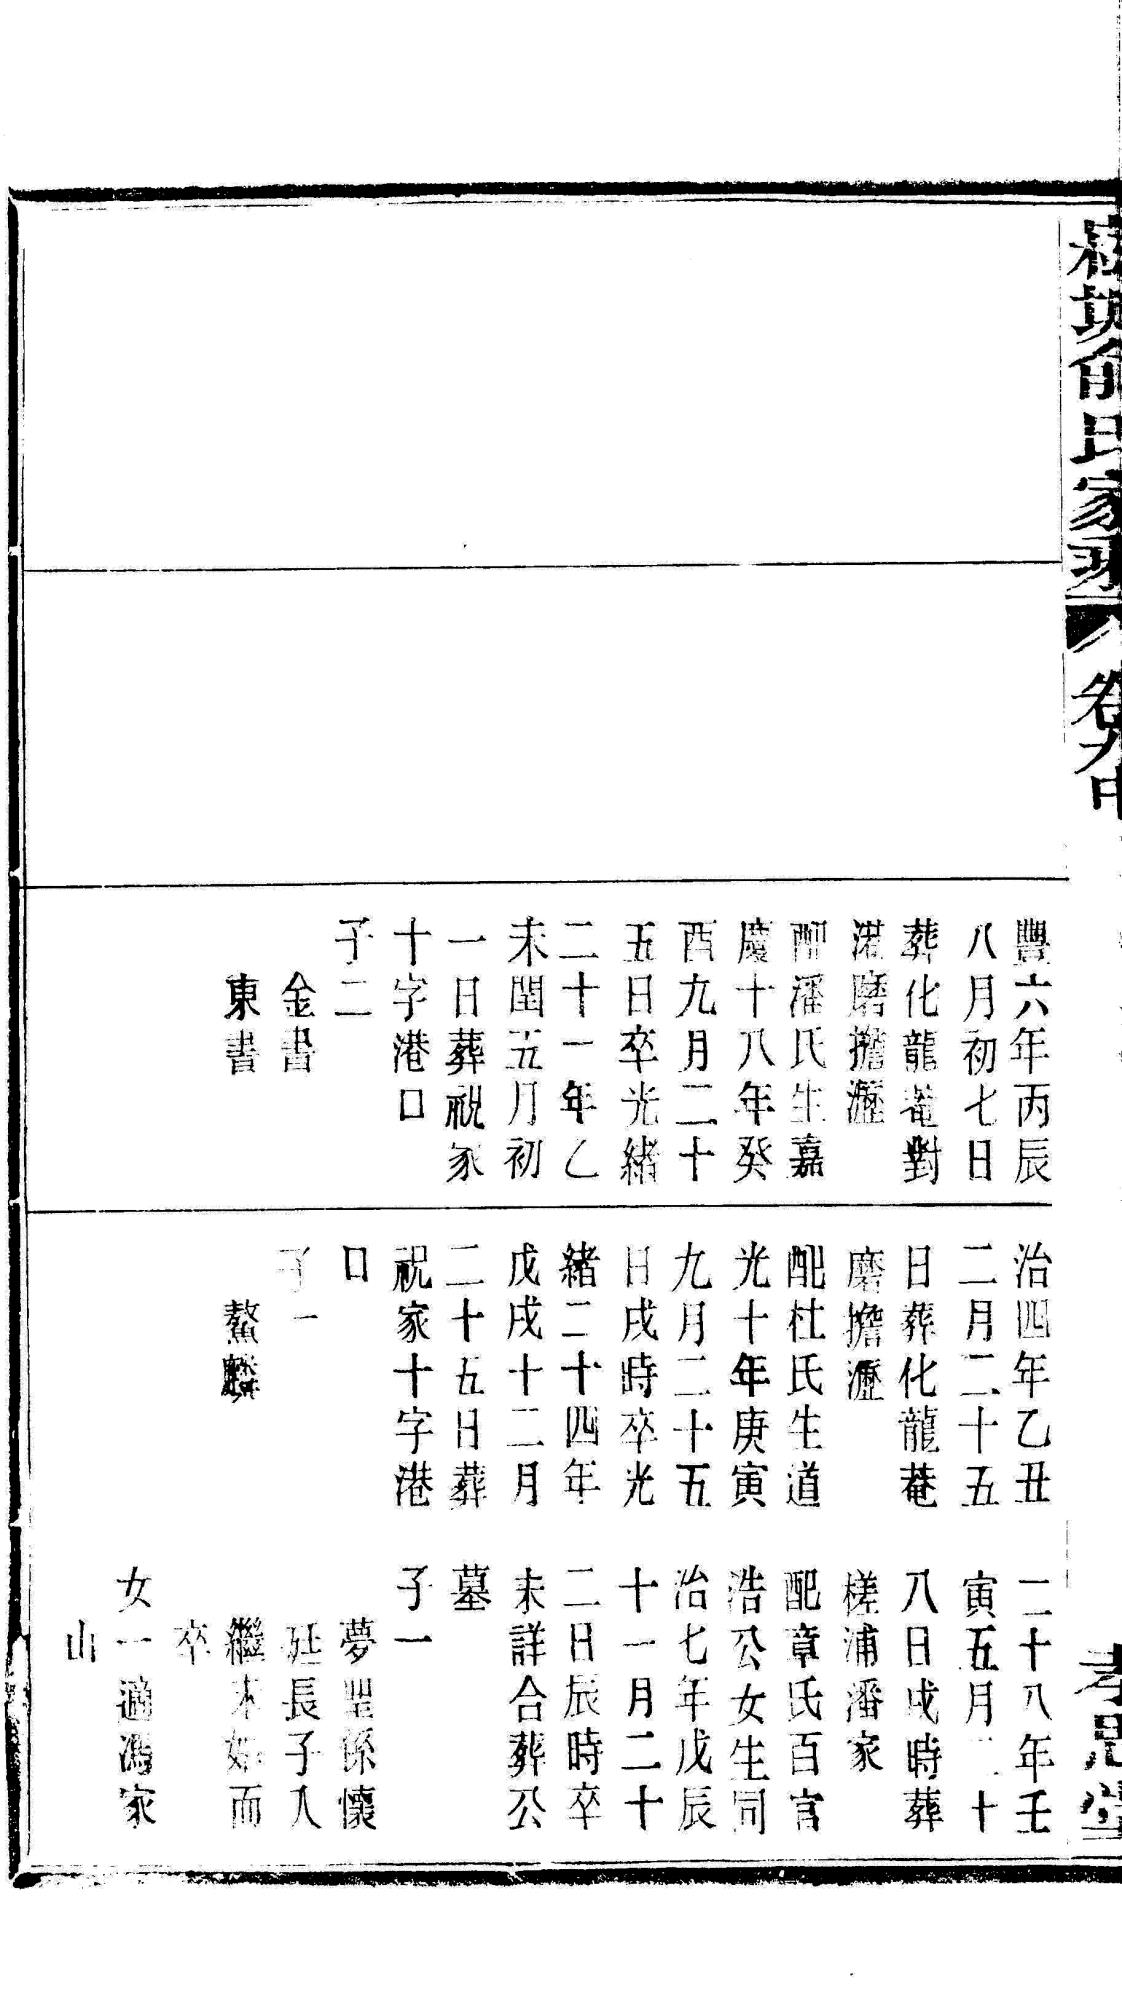 俞氏家乘
卷九中
孝思堂
豐六年丙辰
八月初七日
葬化龍菴對
港磨擔瀝
配潘氏生嘉
慶十八年癸
酉九月二十
五日卒光緒
二十一年乙
未閏五月初
一日葬祝家
十字港口
子二
金書
東書
治四年乙丑
二月二十五
日葬化龍菴
磨擔瀝
配杜氏生道
光十年庚寅
九月二十五
日戌時卒光
緒二十四年
戊戌十二月
二十五日葬
祝家十字港
口
子一
鰲麟
二十八年壬
寅五月二十
八日戌時葬
槎浦潘家
配章氏百官
浩公女生同
治七年戊辰
十一月二十
二日辰時卒
未詳合葬公
墓
子一
夢聖係懷
廷長子入
繼未娶而
卒
女一適馮家
山